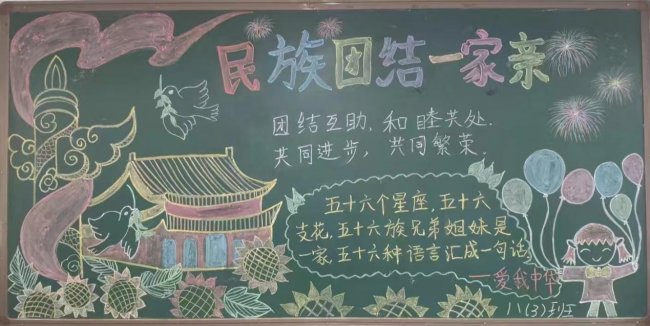 民族团结一家亲
团结互助,和睦共处.
共同进步,共同繁荣.
五十六个星座,五十六
支花,五十六族兄弟姐妹是
一家,五十六种语言汇成一句话,
——爱我中华
八(3)班